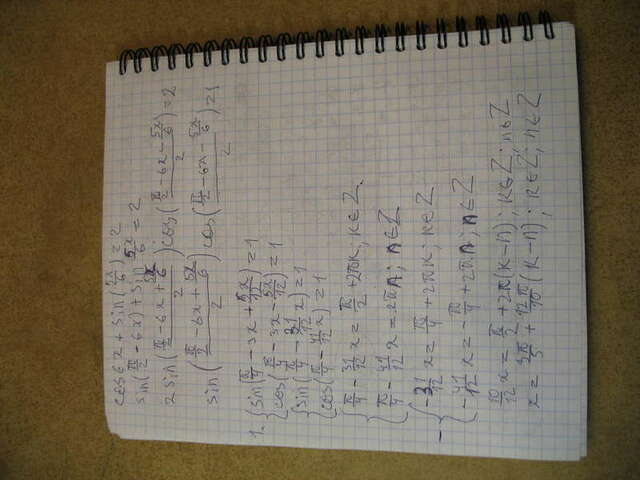 cos6x + sin(5x/6) = 2
sin(π/2 - 6x) + sin 5x/6 = 2
2sin((π/2 - 6x + 5x/6)/2)cos((π/2 - 6x - 5x/6)/2) = 2
sin((π/2 - 6x + 5x/6)/2)cos((π/2 - 6x - 5x/6)/2) = 1
1. { sin(π/4 - 3x + 5x/12) = 1
{ cos(π/4 - 3x - 5x/12) = 1
{ sin(π/4 - 31/12 x) = 1
{ cos(π/4 - 41/12 x) = 1
{ π/4 - 31/12 x = π/2 + 2πk; k∈Z.
{ π/4 - 41/12 x = 2πn; n∈Z
{ -31/12 x = π/4 + 2πk; k∈Z
- { -41/12 x = -π/4 + 2πn; n∈Z
10/12 x = π/2 + 2π(k-n); k∈Z; n∈Z
x = 3π/5 + 12π/10 (k-n); k∈Z; n∈Z